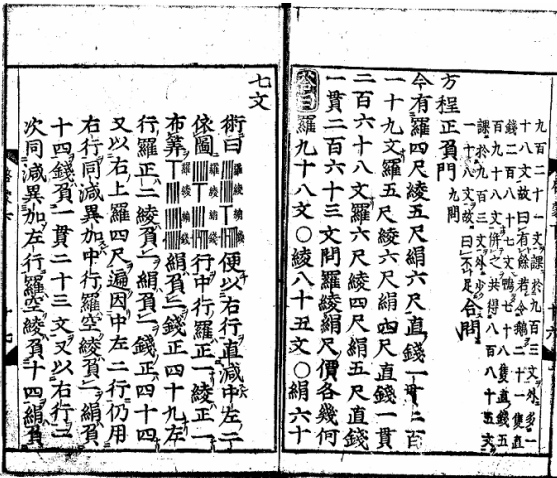 九百二十一文課於九百三文外多一
十八文故曰有餘若令鵝二十一隻直
錢二百八十七文鴨七十八隻直錢五
百九十八文併之共得八百八十五文
課於九百三文外少
一十八文故曰不足 合問
方程正負門 九問
今有羅四尺綾五尺絹六尺直錢一貫二百
一十九文羅五尺綾六尺絹四尺直錢一貫
二百六十八文羅六尺綾四尺絹五尺直錢
一貫二百六十三文問羅綾絹尺價各幾何
答曰羅九十八文○綾八十五文○絹六十
七文
術曰 羅綾絹錢 便以右行直減中左二
依圖 羅綾絹錢 行中行羅正一綾正一
布筭 羅綾絹錢 絹負二錢正四十九左
行羅正二綾負一絹負一錢正四十四
又以右上羅四尺遍因中左二行仍用
右行同減異加中行羅空綾負一絹負
十四錢負一貫二十三文又以右行二
次同減異加左行羅空綾負十四絹負